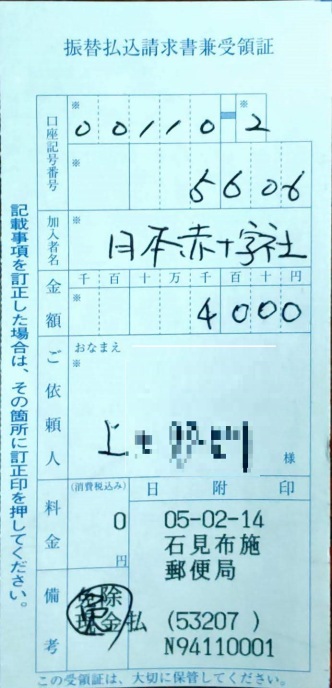 振替払込請求書兼受領証
口座記号番号
※ ※
00110-2
※
5606
加入者名
※
日本赤十字社
金額
千百十万千百十円
※
4000
ご依頼人
おなまえ
※
上
様
料金
(消費税込み)
0
円
日附印
05-02-14
石見布施
郵便局
(53207 )
N94110001
備考
免除
現金払
記載事項を訂正した場合は、その箇所に訂正印を押してください。
この受領証は、大切に保管してください。